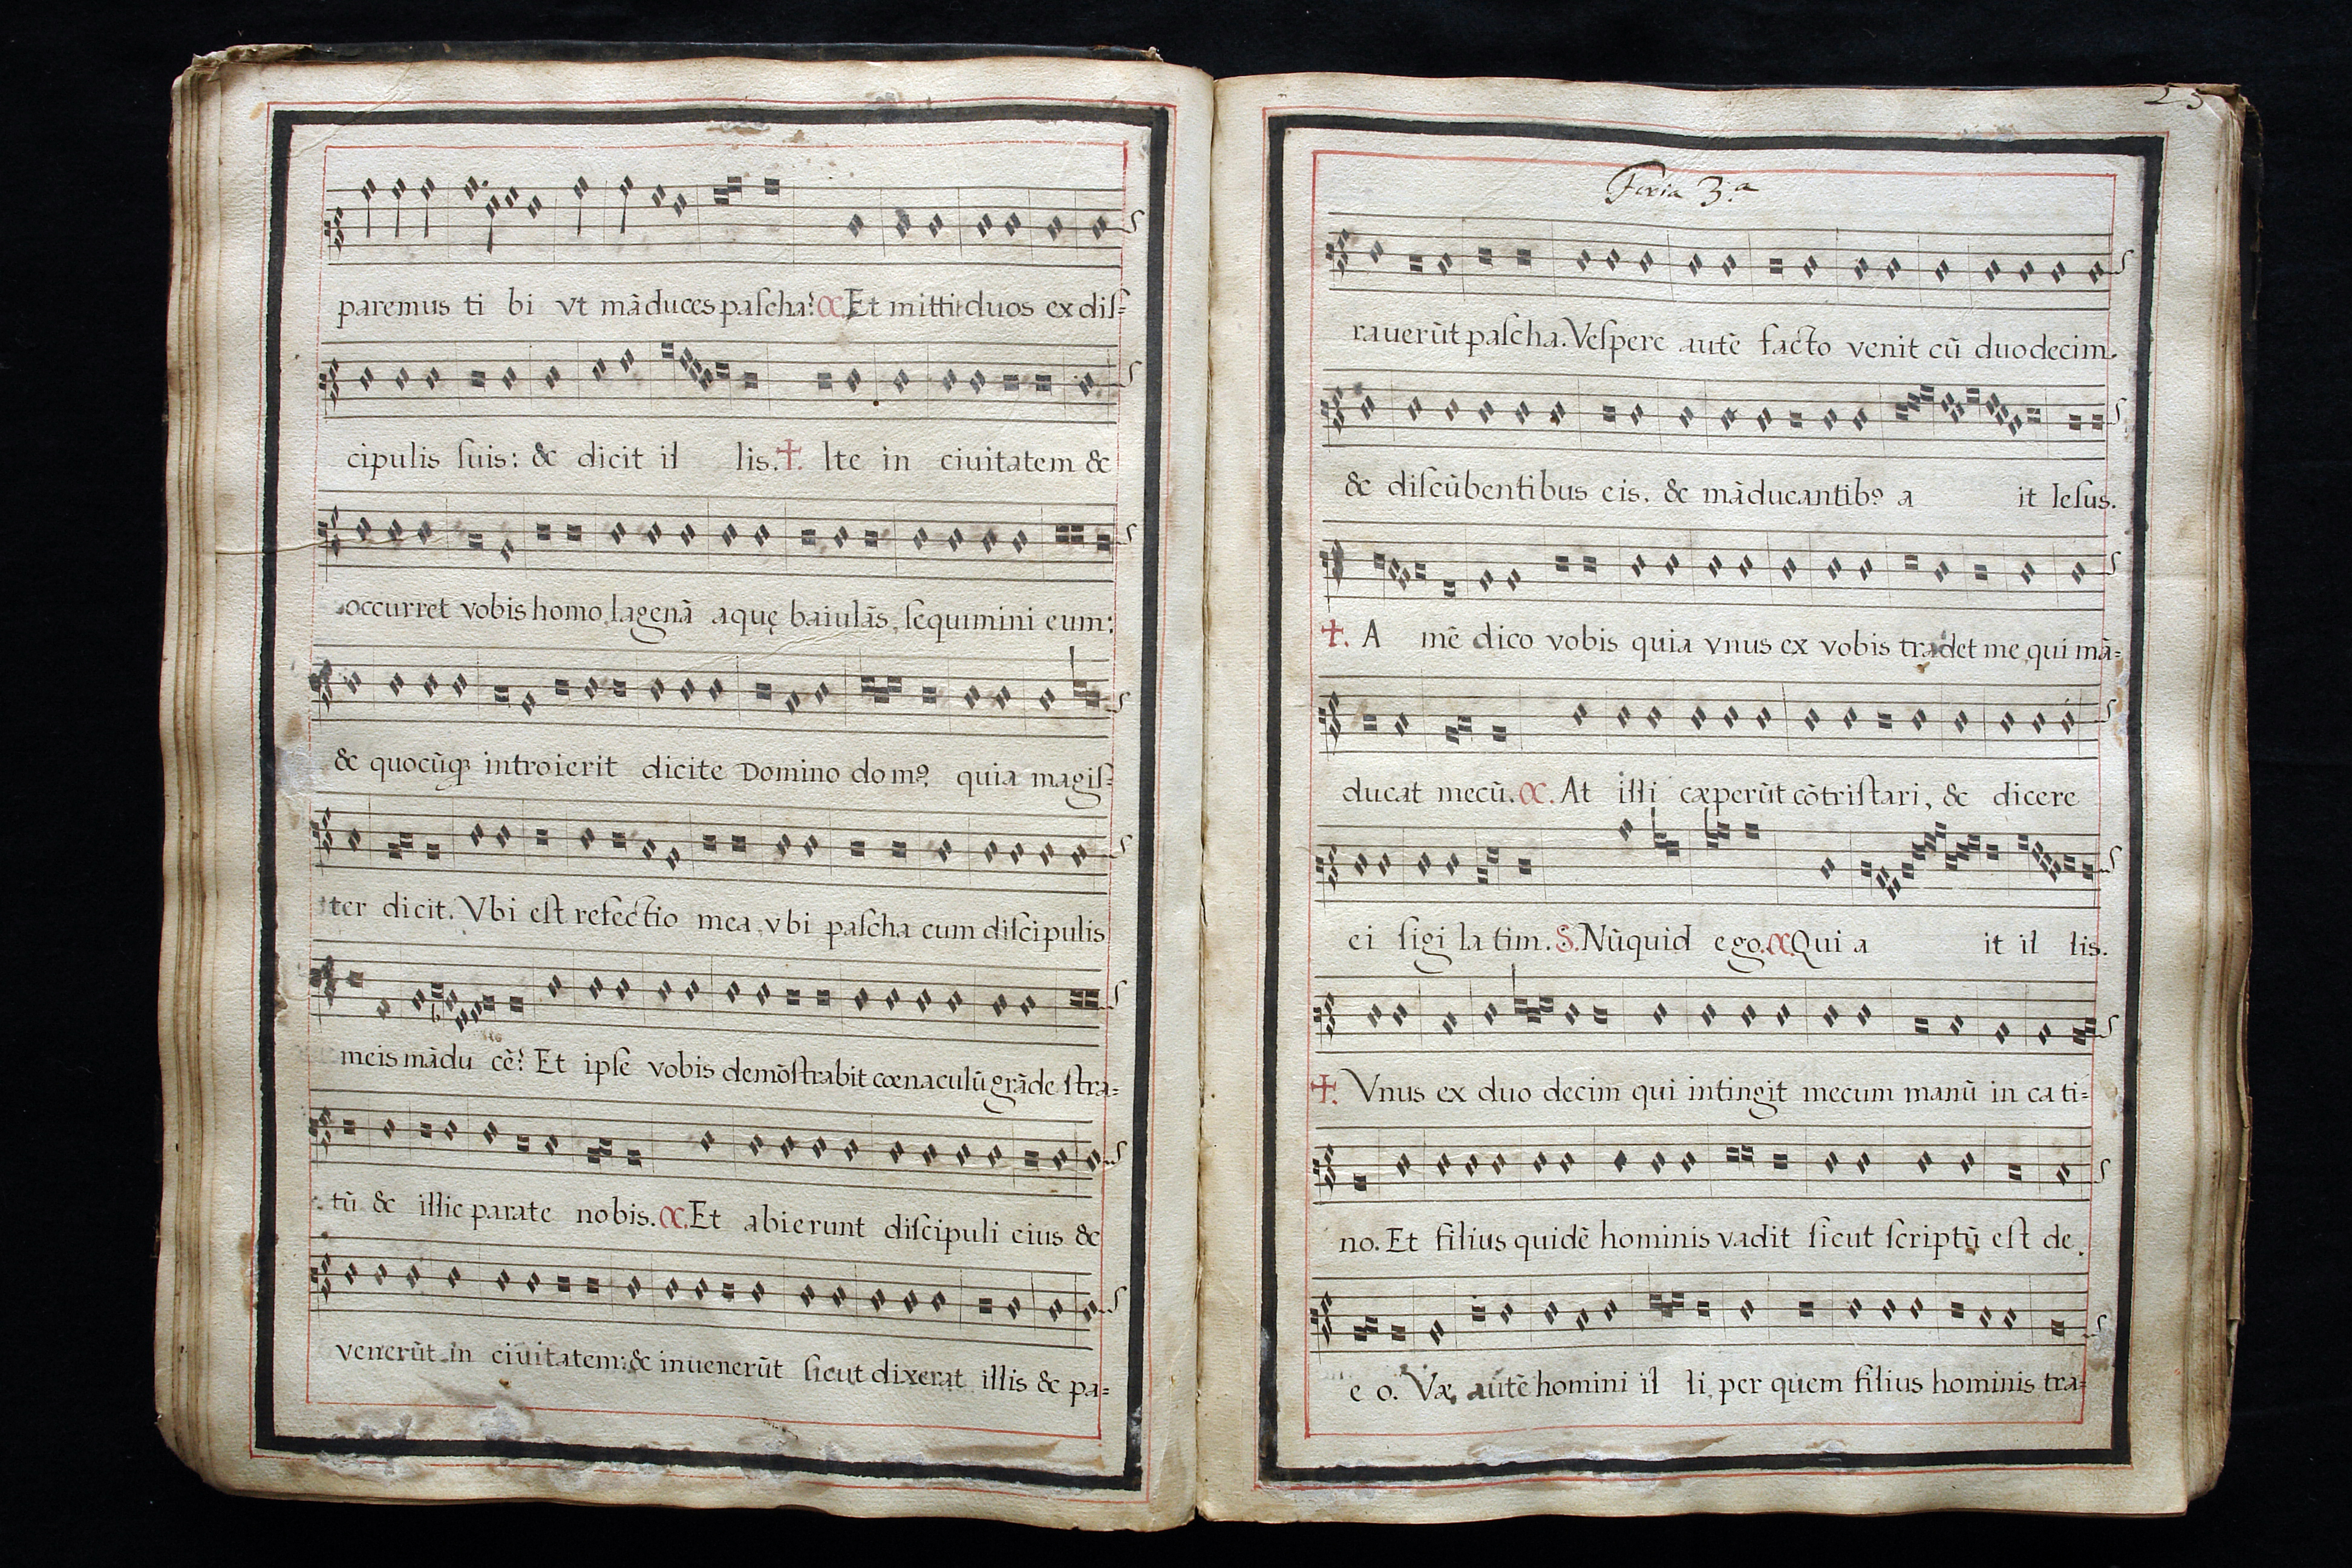 paremus ti bi vt mãduces paſcha? C. Et mittit duos ex diſ=
cipulis ſuis: & dicit il lis. ✠. Ite in ciuitatem &
occurret vobis homo lagenã aquę baiulãs, ſequimini eum:
& quocũqꝫ introierit dicite Domino domꝰ, quia magiſ=
ter dicit. Vbi eſt refectio mea, vbi paſcha cum diſcipulis
meis mãdu cẽ? Et ipſe vobis demõſtrabit cœnaculũ grãde ſtra=
tũ & illic parate nobis. C. Et abierunt diſcipuli eius &
venerũt in ciuitatem: & inuenerũt ſicut dixerat illis & pa=
25
Feria 3.ª
rauerũt paſcha. Veſpere autẽ facto venit cũ duodecim.
& diſcũbentibus eis, & mãducantibꝰ a it Ieſus.
✠. A mẽ dico vobis quia vnus ex vobis tradet me, qui mã=
ducat mecũ. C. At illi cæperũt cõtriſtari, & dicere
ei ſigi la tim. S. Nũquid ego. C. Qui a it il lis.
✠. Vnus ex duo decim qui intingit mecum manũ in ca ti=
no. Et filius quidẽ hominis vadit ſicut ſcriptũ eſt de
e o. Væ autẽ homini il li, per quem filius hominis tra=